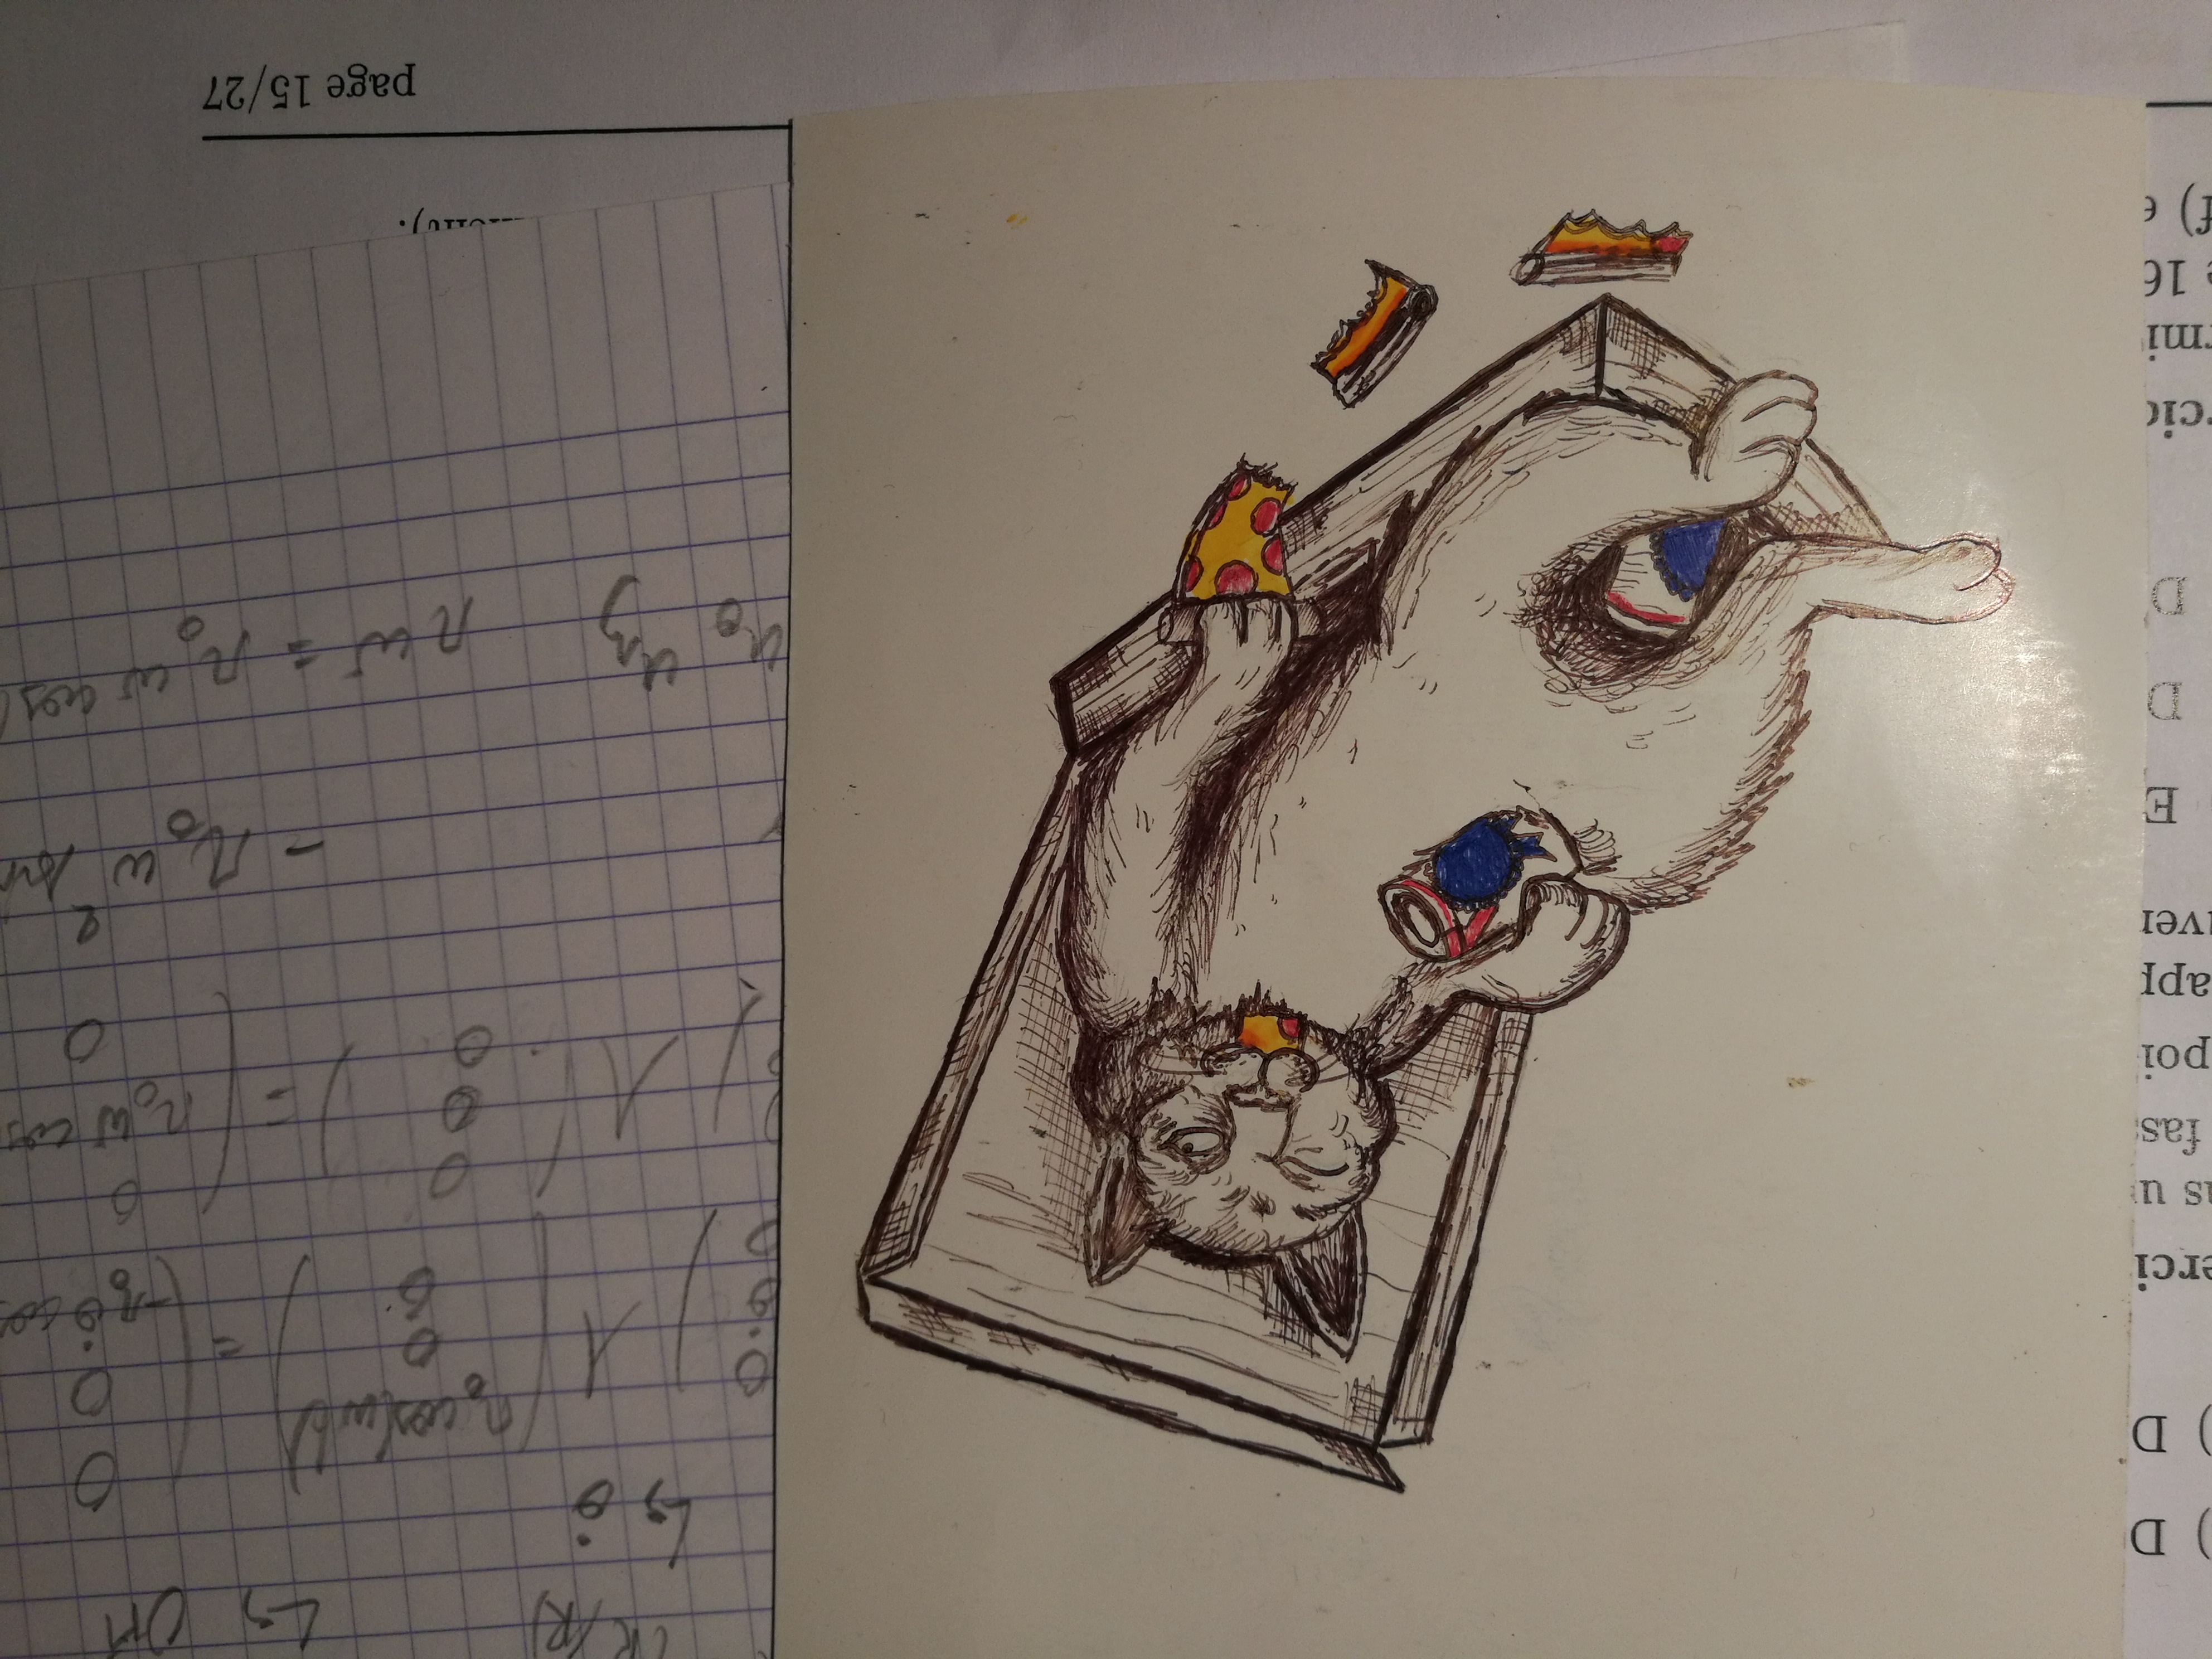 ) D
) D
erci
as u
fass
poi
app
uver
E
D
D
rcic
rmi
e 16
f) e
(R/R)
↳ OM
↳ θ̇
0
θ̇
0
) ∧ ( r₀ cos(wt)
0
0 ) = ( 0
0
-r₀ θ̇ cos
) ∧ ( 0
0
0 ) = ( 0
r₀ w cos
0
- r₀ w² sin
u₀ uz rw = r₀ w cos(
ment).
page 15/27